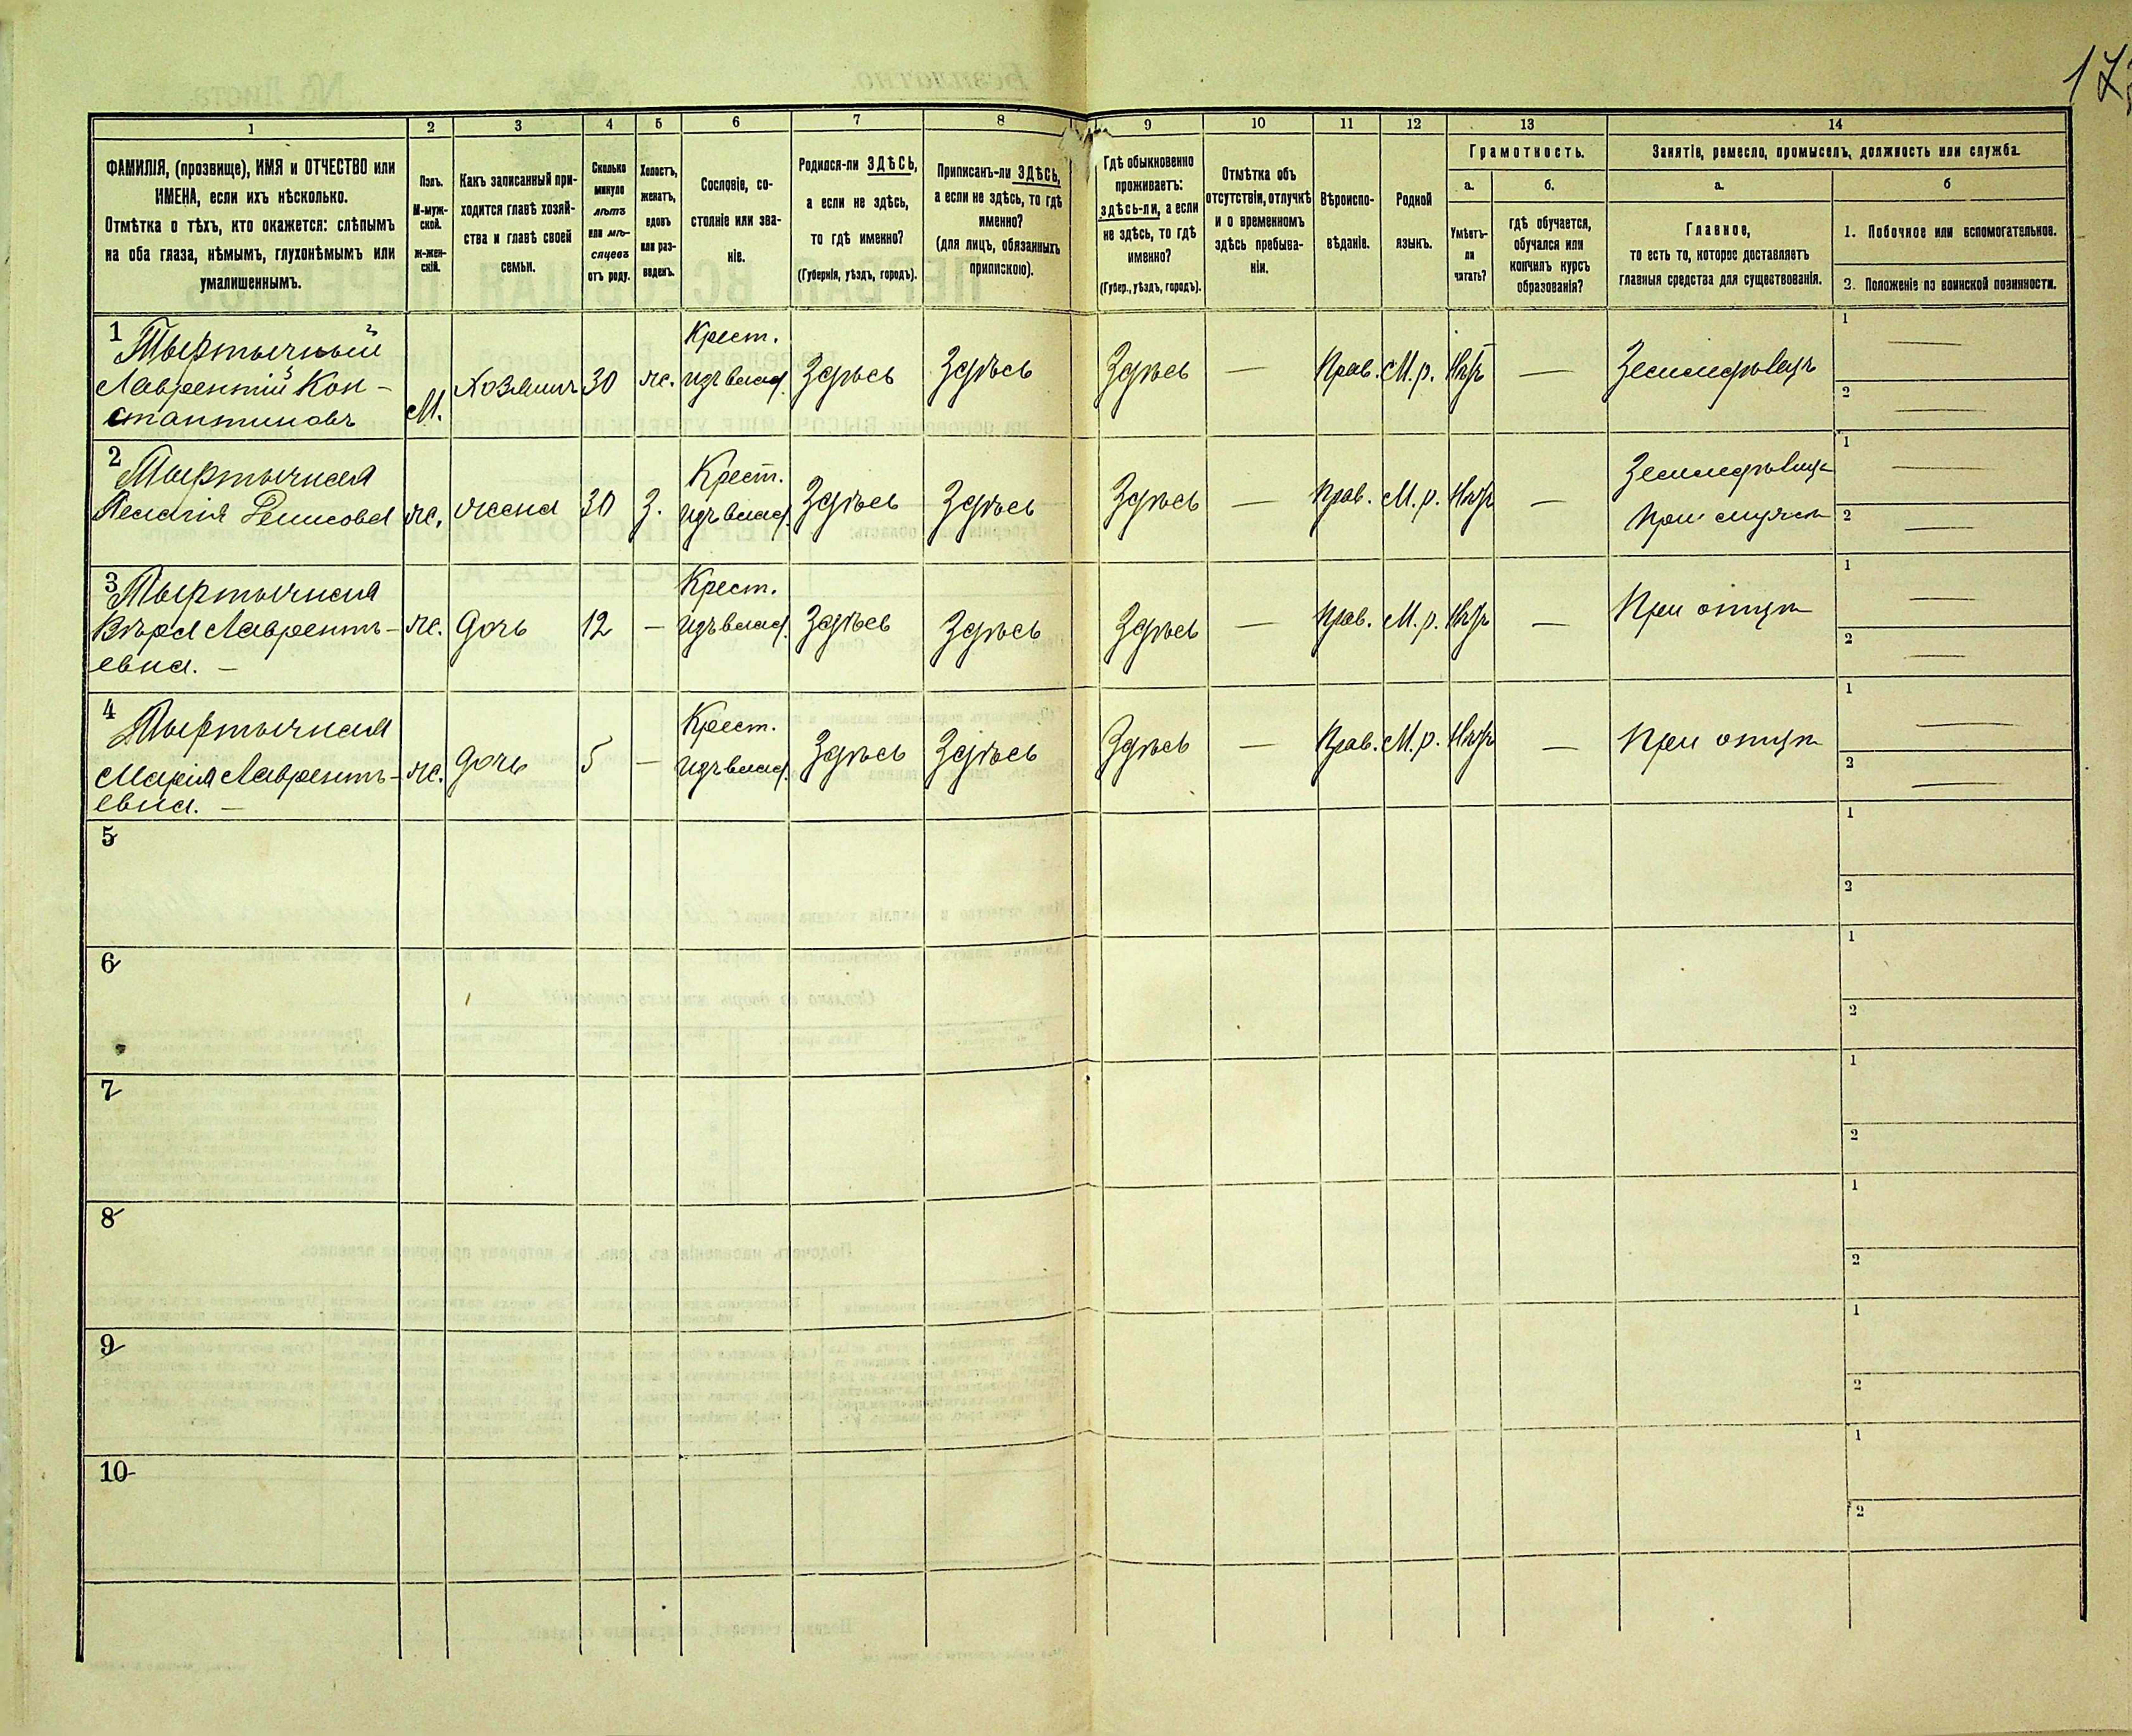 173
1
2
3
4
5
6
7
8
9
10
11
12
13
14
ФАМИЛІЯ, (прозвище), ИМЯ и ОТЧЕСТВО или
ИМЕНА, если ихъ нѣсколько.
Отмѣтка о тѣхъ, кто окажется: слѣпымъ
на оба глаза, нѣмымъ, глухонѣмымъ или
умалишеннымъ.
Полъ.
М-муж-
ской.
Ж-жен-
скій.
Какъ записанный при-
ходится главѣ хозяй-
ства и главѣ своей
семьи.
Сколько
минуло
лѣтъ
или мѣ-
сяцевъ
отъ роду.
Холостъ,
женатъ,
вдовъ
или раз-
веденъ.
Сословіе, со-
стояніе или зва-
ніе.
Родился-ли ЗДѢСЬ,
а если не здѣсь,
то гдѣ именно?
(Губернія, уѣздъ, городъ).
Приписанъ-ли ЗДѢСЬ,
а если не здѣсь, то гдѣ
именно?
(для лицъ, обязанныхъ
припискою).
Гдѣ обыкновенно
проживаетъ:
здѣсь-ли, а если
не здѣсь, то гдѣ
именно?
(Губер., уѣздъ, городъ).
Отмѣтка объ
отсутствіи, отлучкѣ
и о временномъ
здѣсь пребыва-
ніи.
Вѣроиспо-
вѣданіе.
Родной
языкъ.
Грамотность.
а.
б.
Умѣетъ-
ли
читать?
гдѣ обучается,
обучался или
кончилъ курсъ
образованія?
Занятіе, ремесло, промыселъ, должность или служба.
а.
б
Главное,
то есть то, которое доставляетъ
главныя средства для существованія.
1. Побочное или вспомогательное.
2. Положеніе по воинской повинности.
1
Тыртычный
Лаврентій Кон-
стантиновъ
М.
Хозяинъ
30
ж.
Крест.
изъ влад.
Здѣсь
Здѣсь
Здѣсь
—
Прав.
М.р.
Нѣтъ
—
Земледѣлецъ
1 —
2 —
2
Тыртычная
Пелагія Денисова
ж.
жена
30
З.
Крест.
изъ влад.
Здѣсь
Здѣсь
Здѣсь
—
Прав.
М.р.
Нѣтъ
—
Земледѣлица
при мужѣ
1 —
2 —
3
Тыртычная
Вѣра Лавренть-
евна. —
ж.
дочь
12
—
Крест.
изъ влад.
Здѣсь
Здѣсь
Здѣсь
—
Прав.
М.р.
Нѣтъ
—
При отцѣ
1 —
2 —
4
Тыртычная
Марія Лавренть-
евна. —
ж.
дочь
5
—
Крест.
изъ влад.
Здѣсь
Здѣсь
Здѣсь
—
Прав.
М.р.
Нѣтъ
—
При отцѣ
1 —
2 —
5
1
2
6
1
2
7
1
2
8
1
2
9
1
2
10
1
2